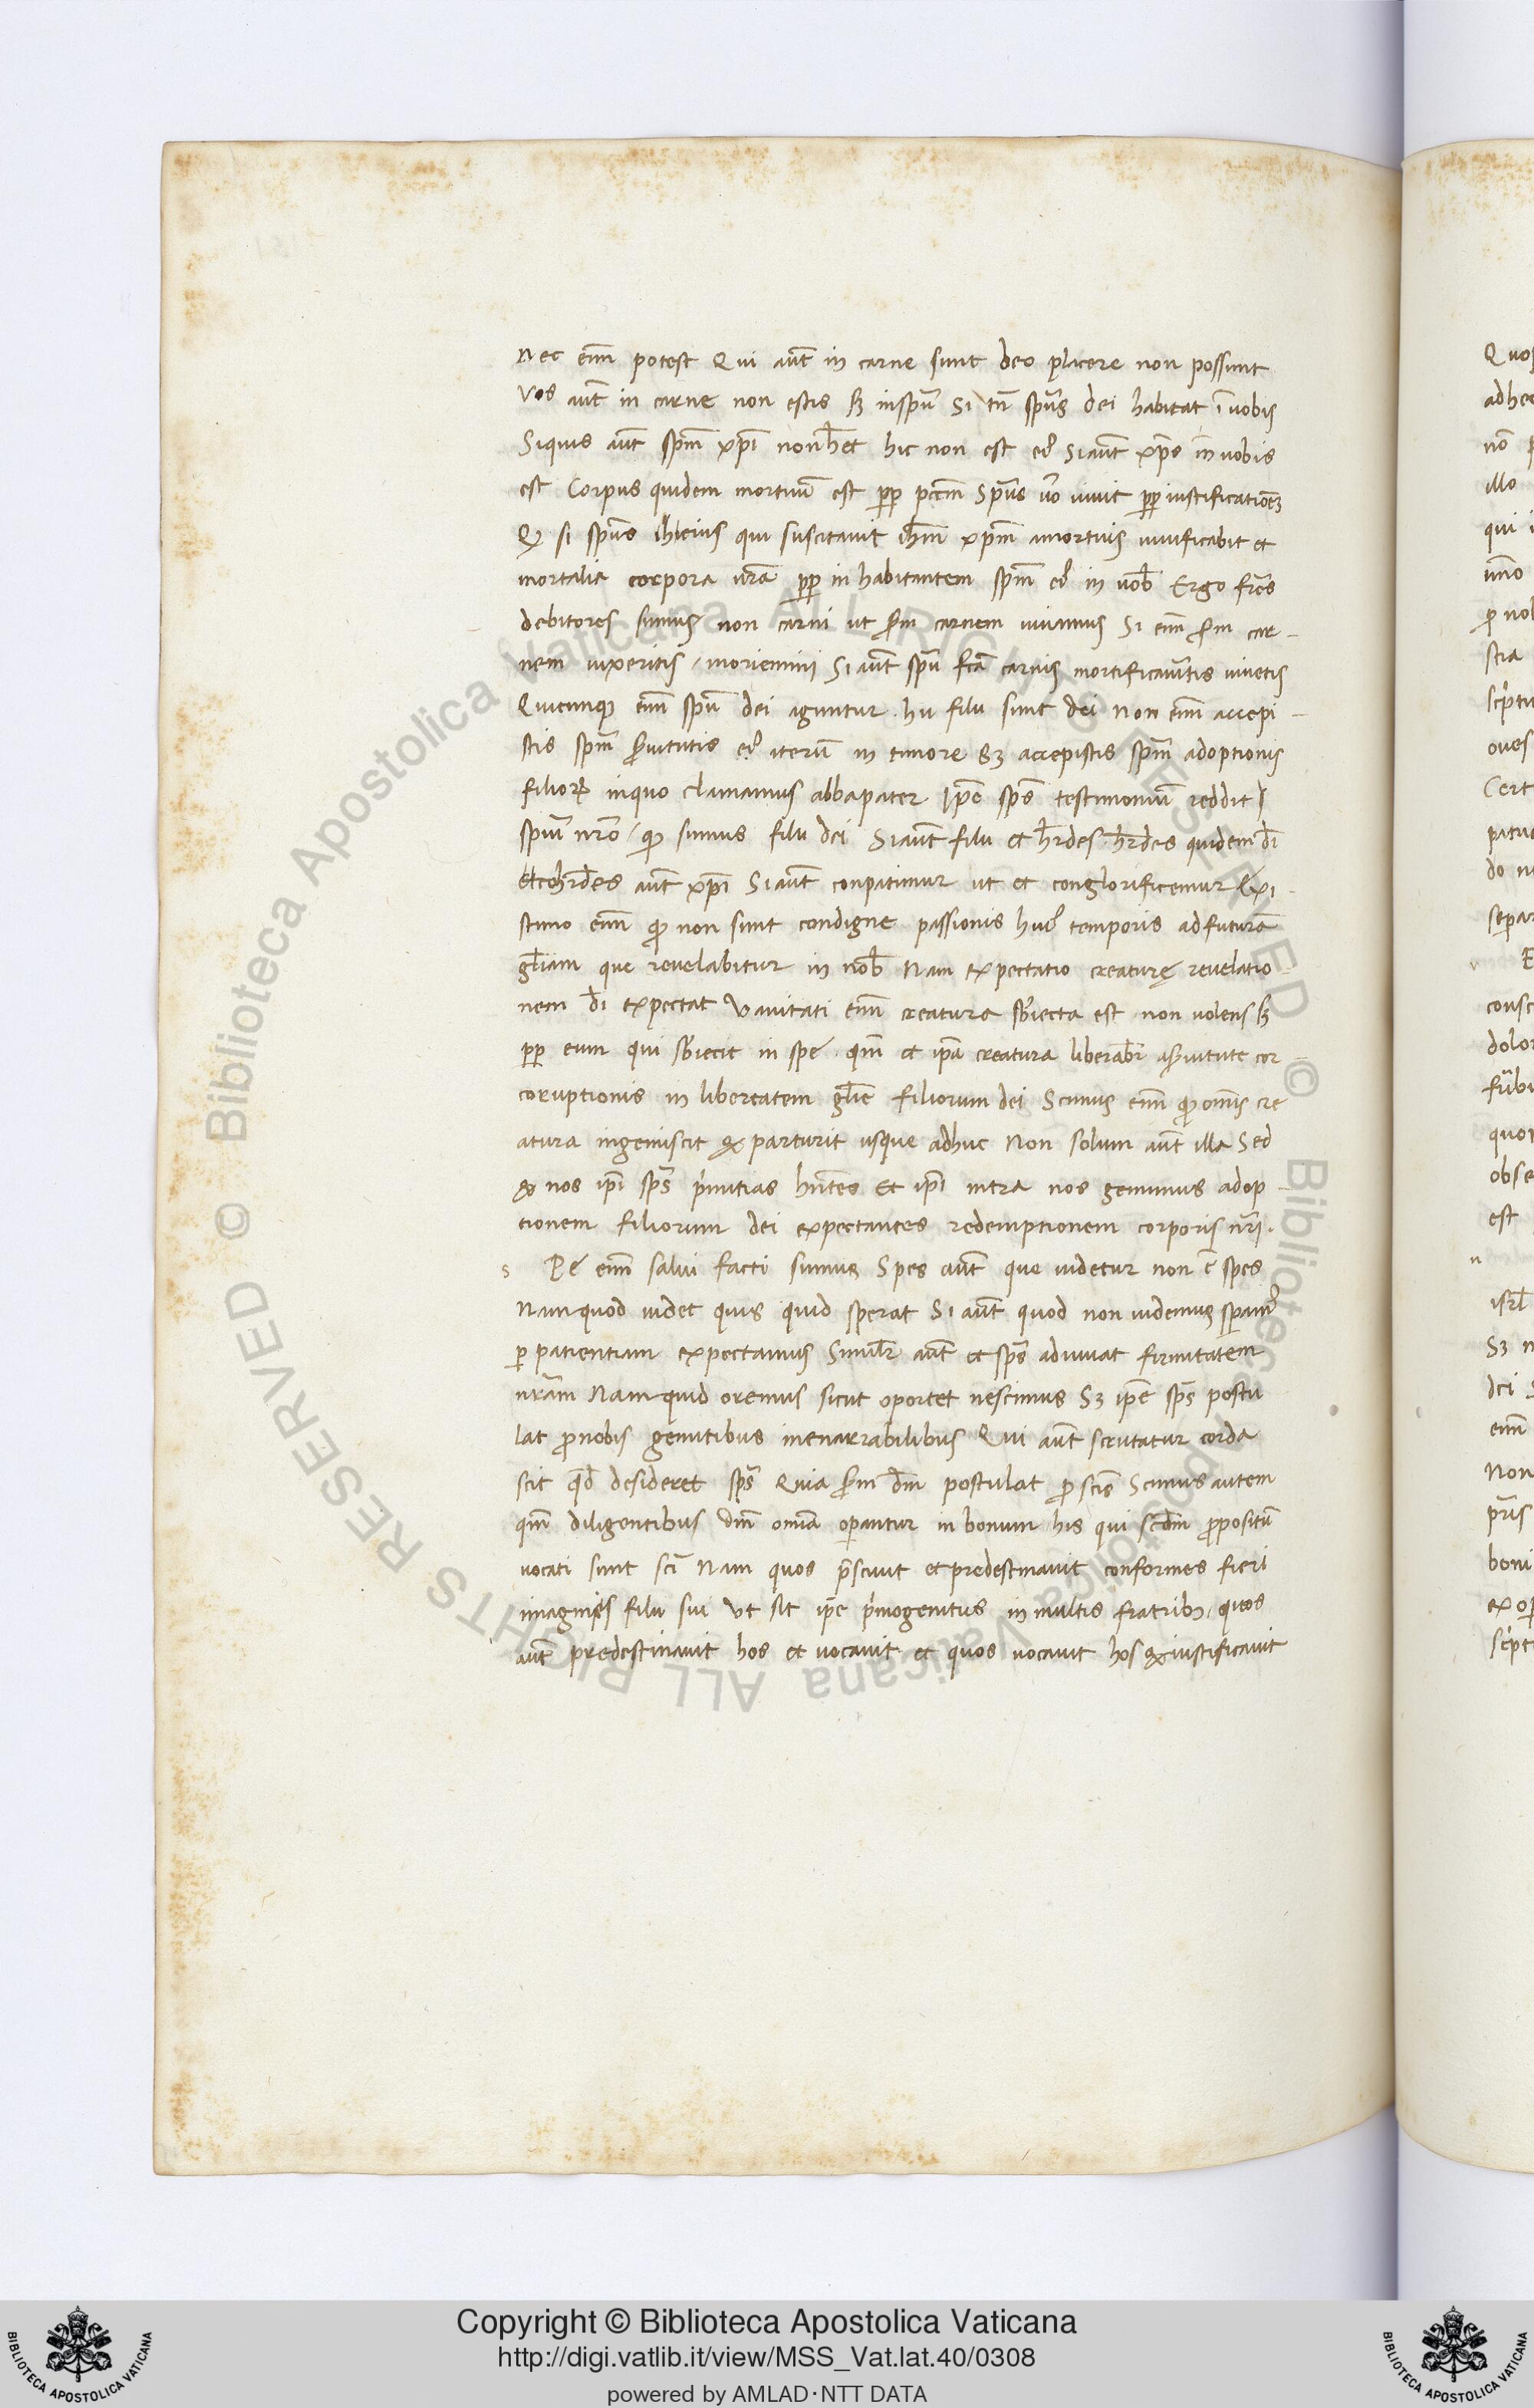 nec eni͂m potest Qui aut͂ in carne sunt deo placere non possunt
Vos aut͂ in carne non estis sꝫ inspu͂ Si tn͂ spu͂s dei habitat ī uobis
Siquis aut͂ spm͂ xpī non hēt hic non est eiꝰ Si aut͂ xp̄s in uobis
est Corpus quidem mortuū est pp̄ pccm̄ Spūs uo͂ uiuit pp̄ iustificationēꝫ
Qꝫ si spūs eius qui suscitauit ihm̄ xpm̄ amortuis uiuificabit et
mortalia corpora urā pp̄ in habitantem spm̄ eiꝰ in uob̄ Ergo frēs
debitores sumus non carni ut scd̄m carnem uiuamus Si enī scd̄m car-
nem uixeritis / moriemini Si aut͂ spū fcā carnis mortificauītis uiuetis
Quicunqꝫ enī spū dei aguntur . hii filii sunt dei Non enī accepi-
stis spm̄ seruitutis iterū in timore Sꝫ accepistis spm̄ adoptionis
filioꝝ inquo clamamus abbapater Ipē spēs testimoniū reddit
spiui nrō / qꝫ sumus filii dei Si aut͂ filii et hr̄des . hr̄des quidem dī
Et cohr̄des aut͂ xpī Si aut͂ conpatimur ut et conglorificemur Exi-
stimo enī qꝫ non sunt condigne passionis huiꝰ temporis ad futurā
glīam que reuelabitur in nob̄ Nam expectatio creaturę reuelatio
nem dī expectat Vanitati enī creatura sbiecta est non uolens sꝫ
pp̄ eum qui sbiecit in spe . qm̄ et ipā creatura liberabr̄ aseruitute cor-
coruptionis in libertatem glīe filiorum dei Scimus enī qꝫ omīs cre
atura ingemiscit & parturit usque adhuc Non solum aut͂ illa Sed
& nos ipī spūs pimitias hn̄tes Et ipī intra nos gemimus adop-
tionem filiorum dei expectantes redemptionem corporis nrī .
s Pe enī salui facti sumus Spes aut͂ que uidetur non ē spes
Nam quod uidet quis quid sperat Si aut͂ quod non uidemus speramꝰ
ꝑ patientiam expectamus Similr̄ aut͂ et spūs adiuuat firmitatem
nrām Nam quid oremus sicut oportet nescimus Sꝫ ipē spūs postu
lat pronobis gemitibus inenarrabilibus Qui aut͂ scrutatur corda
scit qd̄ desideret spūs Quia scd̄m dm̄ postulat pro scīs Scimus autem
qm̄ diligentibus dm̄ omīa operantur in bonum his qui scdm̄ propositū
uocati sunt scī Nam quos prēsciuit et predestinauit conformes fieri
imaginis filii sui Ut sit ipē primogenitus in multis fratribꝫ . quos
aut͂ predestinauit hos et uocauit et quos uocauit hos & iustificauit
Copyright © Biblioteca Apostolica Vaticana
http://digi.vatlib.it/view/MSS_Vat.lat.40/0308
powered by AMLAD·NTT DATA